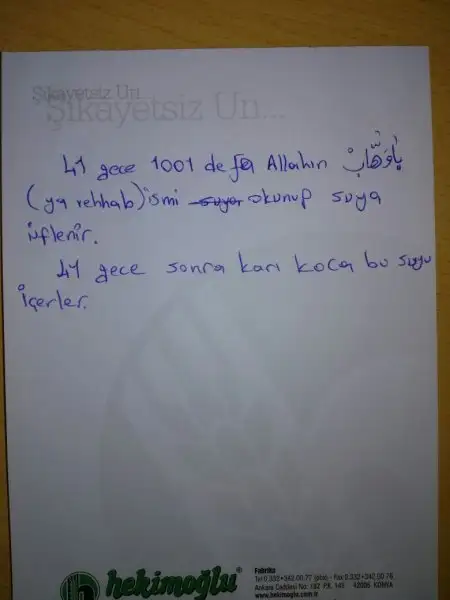 Şikayetsiz Un
Şikayetsiz Un...
41 gece 1001 defa Allahın يَاوَهَّابْ
(ya vehhab) ismi suya okunup suya
üflenir.
41 gece sonra karı koca bu suyu
içerler.
hekimoğlu®
Fabrika
Tel 0.332+342 00 77 (pbx) - Fax 0.332+342 00 76
Ankara Caddesi No: 162 P.K. 143 42006 KONYA
www.hekimoglu.com.tr